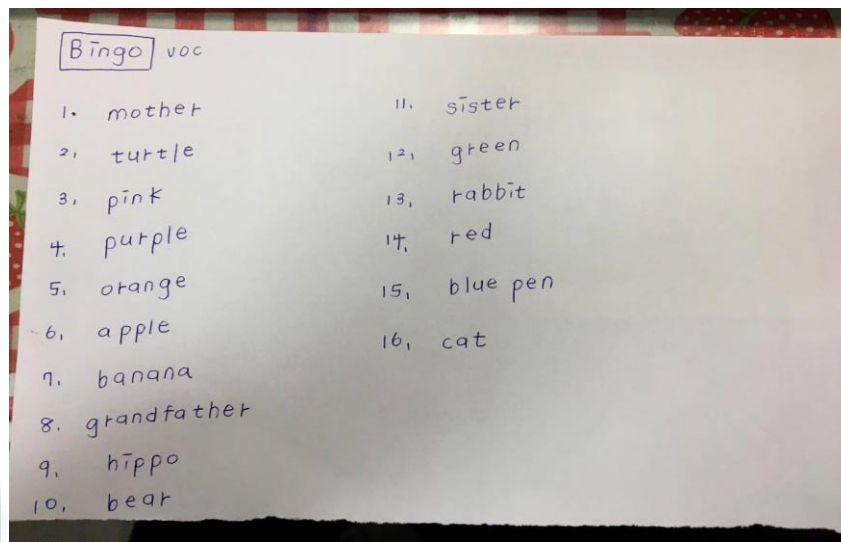 Bingo voc
1. mother
2. turtle
3. pink
4. purple
5. orange
6. apple
7. banana
8. grandfather
9. hippo
10. bear
11. sister
12. green
13. rabbit
14. red
15. blue pen
16. cat